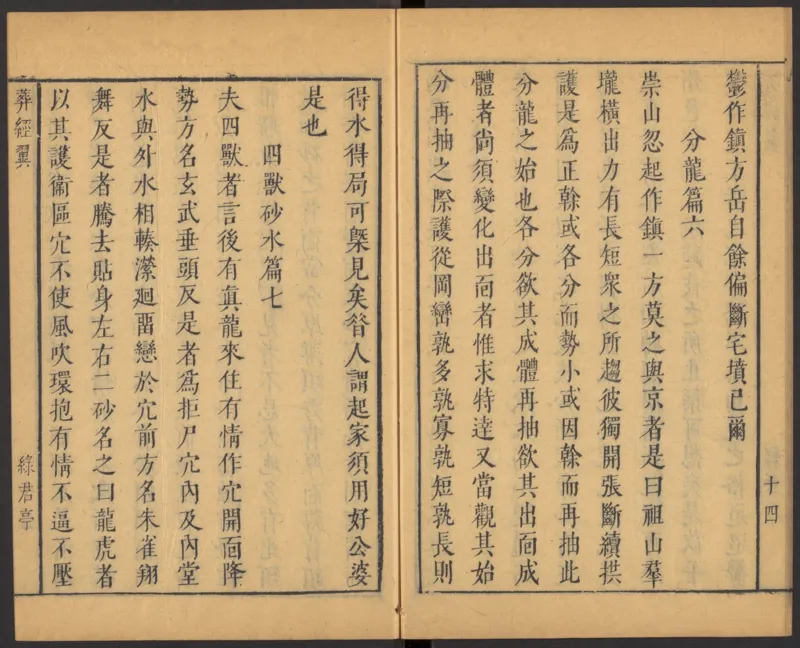 十四
鬱作鎮方岳自餘偏斷宅墳已爾
分龍篇六
崇山忽起作鎮一方莫之與京者是曰祖山羣
壠橫出力有長短衆之所趨彼獨開張斷續拱
護是爲正榦或各分而勢小或因榦而再抽此
分龍之始也各分欲其成體再抽欲其出靣成
體者尚須變化出靣者惟求特達又當觀其始
分再抽之際護從岡巒孰多孰寡孰短孰長則
得水得局可槩見矣昝人謂起家須用好公婆
是也
四獸砂水篇七
夫四獸者言後有眞龍來住有情作穴開靣降
勢方名玄武垂頭反是者爲拒尸穴內及內堂
水與外水相輳瀠廻畱戀於穴前方名朱雀翔
舞反是者騰去貼身左右二砂名之曰龍虎者
以其護衞區穴不使風吹環抱有情不逼不壓
葬經翼
綠君亭